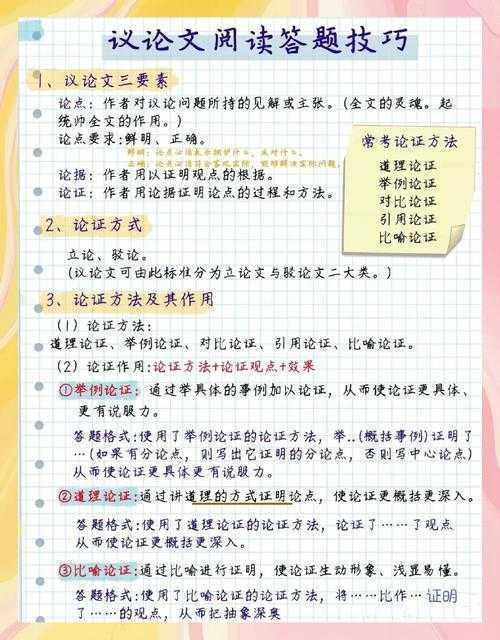 议论文阅读答题技巧
1、议论文三要素
论点：作者对议论问题所持的见解或主张。(全文的灵魂。起
统帅全文的作用。)
论点要求：鲜明、正确。
鲜明：论点必须表示拥护什么，反对什么。
正确：论点必须符合客观实际，能够解决实际问题。
论据：作者用以证明观点的根据。
论证：作者用论据证明论点的过程和方法。
常考论证方法
道理论证
举例论证
对比论证
引用论证
比喻论证
2、论证方式
立论、驳论。
(议论文可由此标准分为立论文与驳论文二大类。)
3、论证方法及其作用
(1) 论证方法：
道理论证、举例论证、对比论证、引用论证、比喻论证。
(2) 论证作用:论证方法+论证观点+效果
①举例论证：通过举具体的事例加以论证，从而使论证更具体、
更有说服力。
答题格式:使用了举例论证的论证方法，举..(概括事例)证明了
…(如果有分论点，则写出它证明的分论点，否则写中心论点)
从而使论证更具体更有说服力。
②道理论证:通过讲道理的方式证明论点，使论证更概括更深入。
答题格式:使用了道理论证的论证方法，论证了……了观点
从而使论证更概括更深入。
③比喻论证:通过比喻进行证明，使论证生动形象、浅显易懂。
答题格式:使用了比喻论证的论证方法，将……比作…证明
了……的观点，从而把抽象深奥